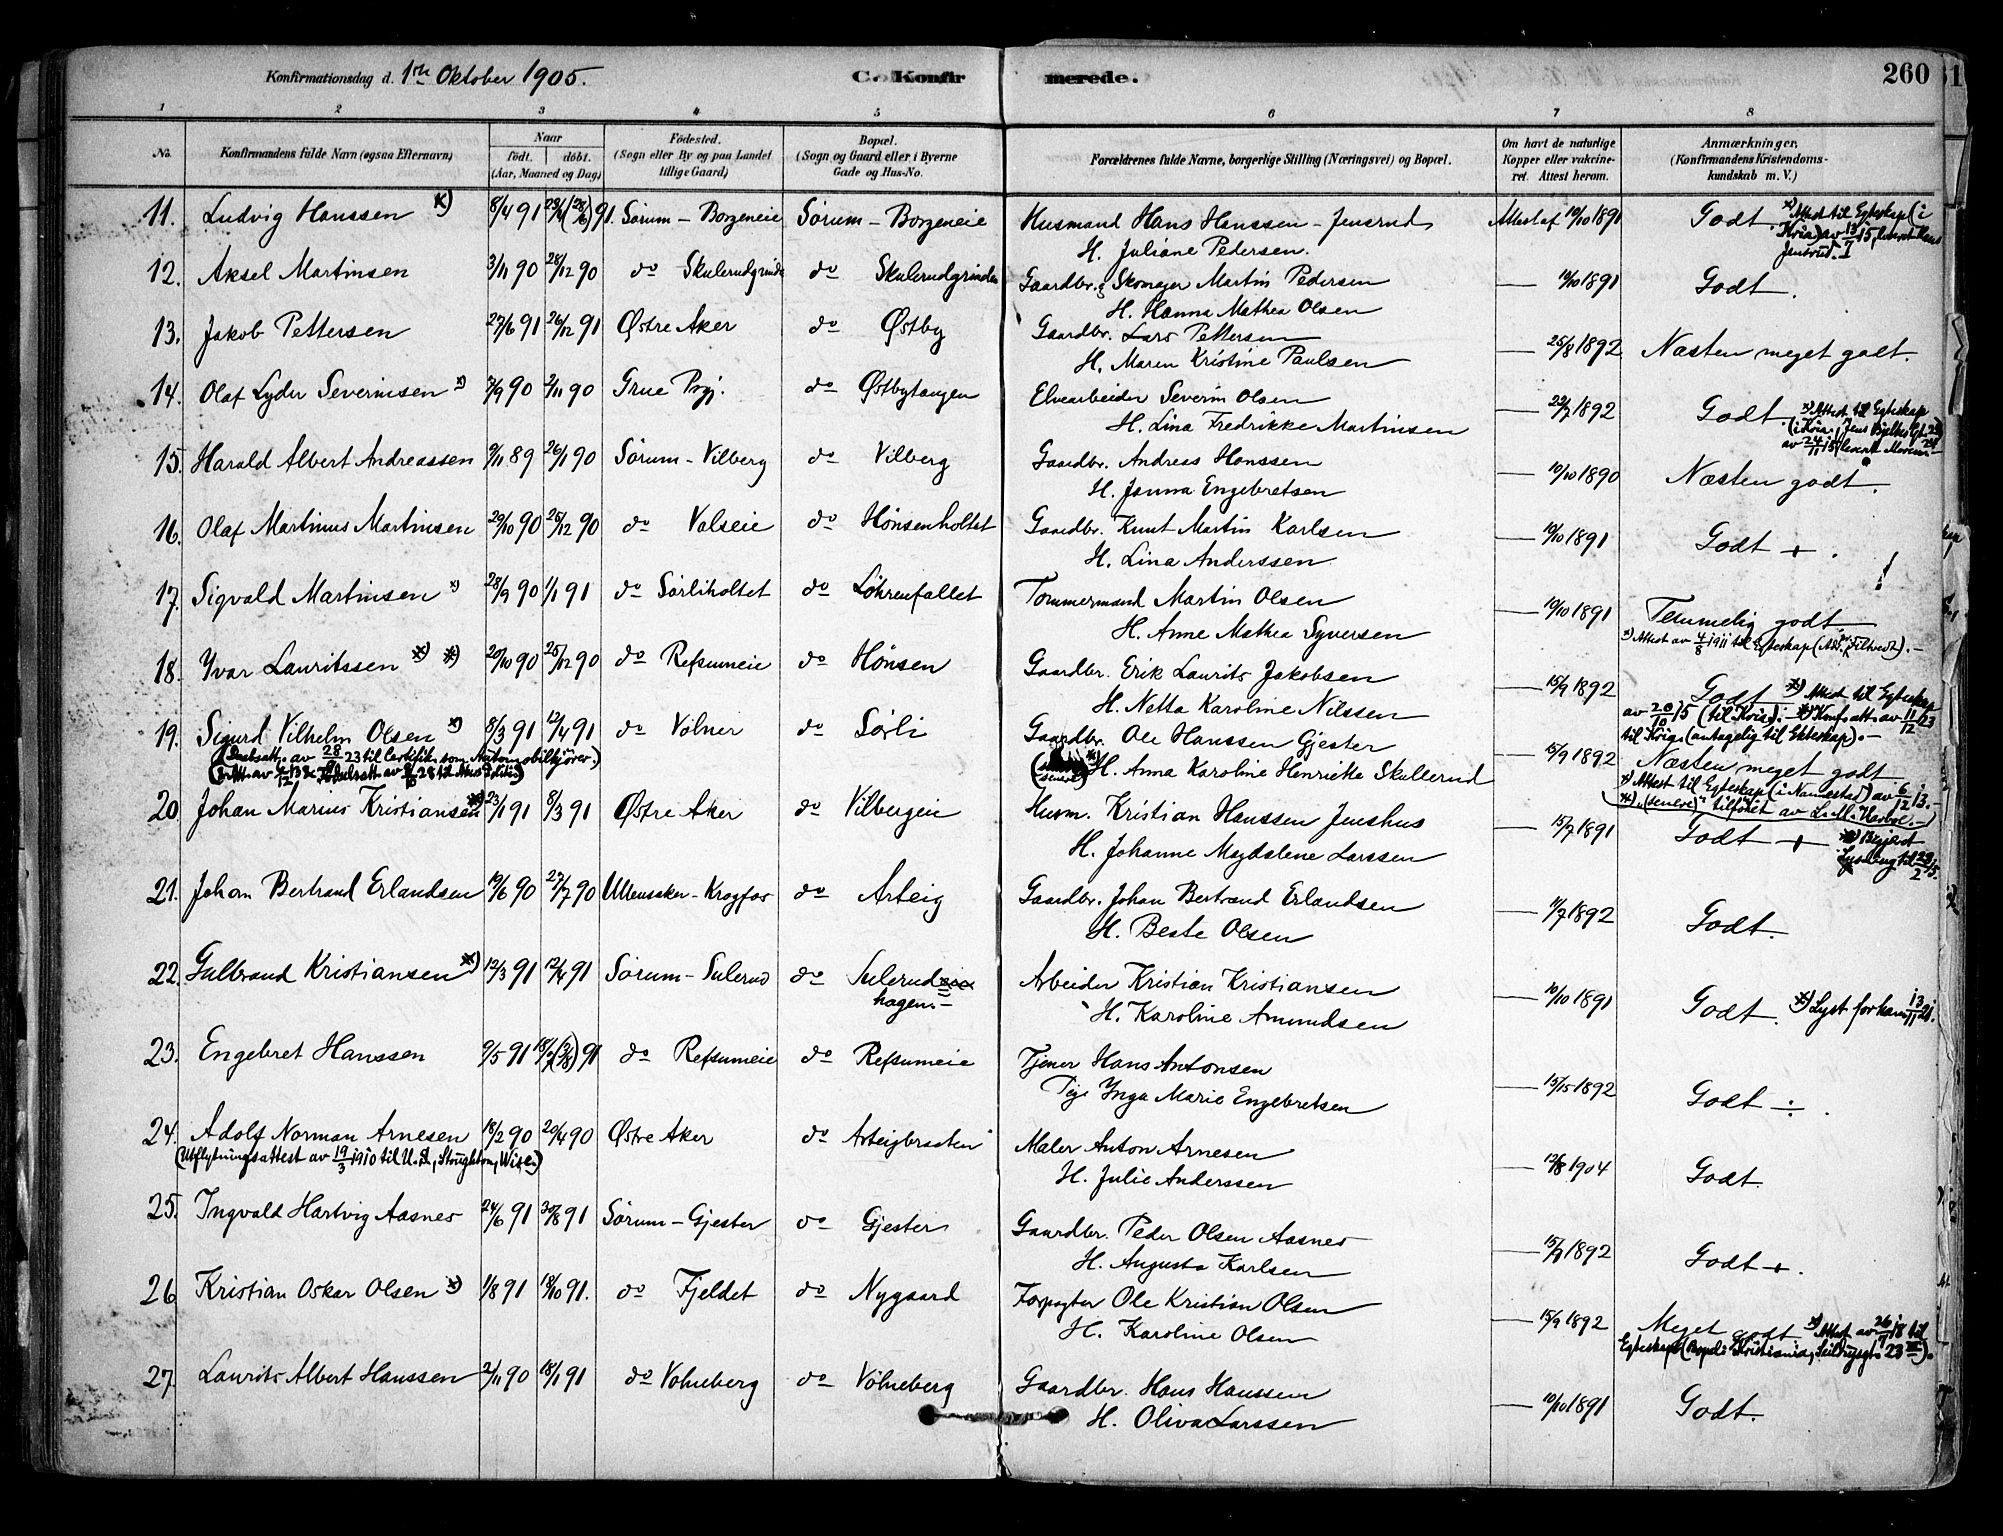 Konfirmationsdag d. 1ste Oktober 1905. C. Konfirmerede. 260
1 2 3 4 5 6 7 8
No. Konfirmandens fulde Navn (ogsaa Efternavn) Naar født. døbt. (Aar, Maaned og Dag) Fødested. (Sogn eller By og paa Landet tillige Gaard) Bopæl. (Sogn og Gaard eller i Byerne Gade og Hus-No. Forældrenes fulde Navne, borgerlige Stilling (Næringsvei) og Bopæl. Om havt de naturlige Kopper eller vaccineret. Attest herom. Anmærkninger, (Konfirmandens Kristendomskundskab m. V.)
11. Ludvig Hanssen x) 8/4 91 91. Sørum - Borgeneie Sørum - Borgeneie Husmand Hans Hanssen - Jensrud Attest af 10/10 1891 Godt x) Attest til Egteskap (i
H. Juliane Pedersen. Kria) av 13/1 15, levert Hans
Jensrud.
12. Aksel Martinsen 3/11 90 28/12 90 do Skulerudgrinde do Skulerudgrinden Gaardbr. & Skomager Martin Pedersen — 10/10 1891 Godt.
H. Hanna Mathea Olsen
13. Jakob Pettersen 27/6 91 26/12 91 Østre Aker do Østby Gaardbr. Lars Pettersen — 25/8 1892 Næsten meget godt.
H. Maren Kristine Paulsen
14. Olaf Lyder Severinsen x) 7/9 90 2/11 90 Grue Pgj. do Østbytangen Elvearbeider Severin Olsen — 22/7 1892 Godt. x) Attest til Egteskap
H. Lina Fredrikke Martinsen (i Kria, Jens Bjelkes Gt.
av 24/11 15 levert
15. Harald Albert Andreassen 9/11 89 26/1 90 Sørum - Vilberg do Vilberg Gaardbr. Andreas Hanssen — 10/10 1890 Næsten godt.
H. Janna Engebretsen
16. Olaf Martinus Martinsen 20/10 90 25/12 90 do Valseie do Hønsenholtet Gaardbr. Knut Martin Karlsen — 10/10 1891 Godt +.
H. Lina Anderssen
17. Sigvald Martinsen x) 28/9 90 1/1 91 do Sørliholtet do Løkrenfallet Tømmermand Martin Olsen — 10/10 1891 Temmelig godt
H. Anne Mathea Syversen x) Attest av 4/8 1911 til Egteskap
18. Yvar Lauritssen x) x) 20/10 90 25/12 90 do Refsumeie do Hønsen Gaardbr. Erik Laurits Jakobsen — 15/9 1892 Godt x) Attest til Egteskap
H. Netta Karoline Nilssen av 20/10 15 (til Kria). - x) Konf. att. av 11/12 23
til Krig. (antagelig til Ekteskap). -
19. Sigurd Vilhelm Olsen x) 8/3 91 12/4 91 do Vølner do Sørli Gaardbr. Ole Hanssen Gjester — 15/9 1892 Næsten meget godt
(Daabsatt. av 28/9 23 til Certifik. som Automobilkjører.) (senere) H. Anna Karoline Henriette Skullerud x) Attest til Egteskap (i Nannestad) av 6/12 13. -
x). (senere) tilføiet av L. M.
20. Johan Marius Kristiansen x) 23/1 91 8/3 91 Østre Aker do Vilbergeie Husm. Kristian Hanssen Jenshus — 15/7 1891 Godt + x) Begjært
H. Johanne Magdalene Larssen Lysning til 29/2 15.
21. Johan Bertrand Erlandsen 19/6 90 27/7 90 Ullensaker - Krogfos do Arteig Gaardbr. Johan Bertrand Erlandsen — 11/7 1892 Godt.
H. Beate Olsen
22. Gulbrand Kristiansen x) 12/3 91 12/4 91 Sørum - Sulerud do Sulerudeie Arbeider Kristian Kristiansen — 10/10 1891 Godt. x) Lyst for ham i 3/11 21.
hagen. - H. Karoline Amundsen
23. Engebret Hanssen 9/5 91 91 do Refsumeie do Refsumeie Tjener Hans Antonsen — 15/5 1892 Godt ÷.
Pige Ynga Marie Engebretsen
24. Adolf Norman Arnesen 18/2 90 20/4 90 Østre Aker do Arteigbraaten Maler Anton Arnesen — 12/8 1904 Godt.
(Utflytningsattest av 19/3 1910 til U.S., Stoughton, Wisc.) H. Julie Anderssen
25. Ingvald Hartvig Aasnes 24/6 91 30/8 91 Sørum - Gjester do Gjester Gaardbr. Peder Olsen Aasnes — 15/9 1892 Godt +.
H. Augusta Karlsen
26 Kristian Oskar Olsen x) 1/8 91 18/10 91. do Fjeldet do Nygaard Forpagter Ole Kristian Olsen — 15/9 1892 Meget godt x) Attest av 26/7 18 til
H. Karoline Olsen Egteskap (Bopæl: Kristiania, Seildugsgt. 23 III).
27. Laurits Albert Hanssen 2/11 90 18/1 91 do Volneberg do Vølneberg Gaardbr. Hans Hanssen — 10/10 1891 Godt.
H. Oliva Larssen